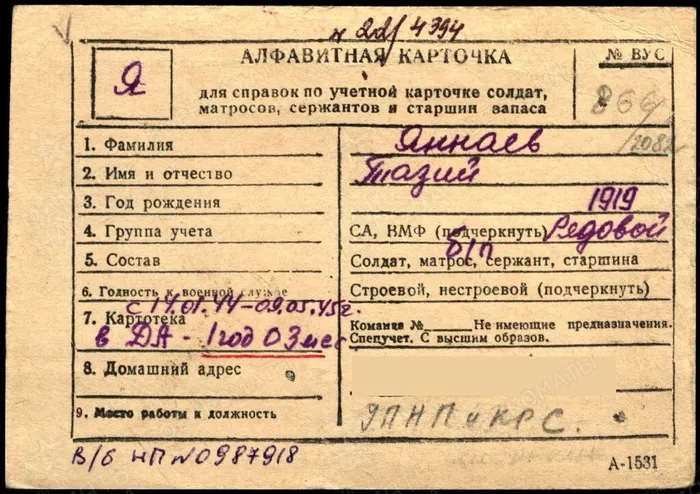 н 22/4394
АЛФАВИТНАЯ КАРТОЧКА
№ ВУС
Я
для справок по учетной карточке солдат,
матросов, сержантов и старшин запаса
866/2082
1. Фамилия Яннаев
2. Имя и отчество Тазий
3. Год рождения 1919
4. Группа учета СА, ВМФ (подчеркнуть) Редовой
5. Состав Солдат, матрос, сержант, старшина б/п
6. Годность к военной службе Строевой, нестроевой (подчеркнуть)
с 14.01.44-09.05.45г.
7. Картотека Команда № Не имеющие предназначения.
Спецучет. С высшим образов.
в ДА - 1 год 03 мес
8. Домашний адрес
9. Место работы и должность УПНП и КРС.
В/б НП №0987918
А-1531